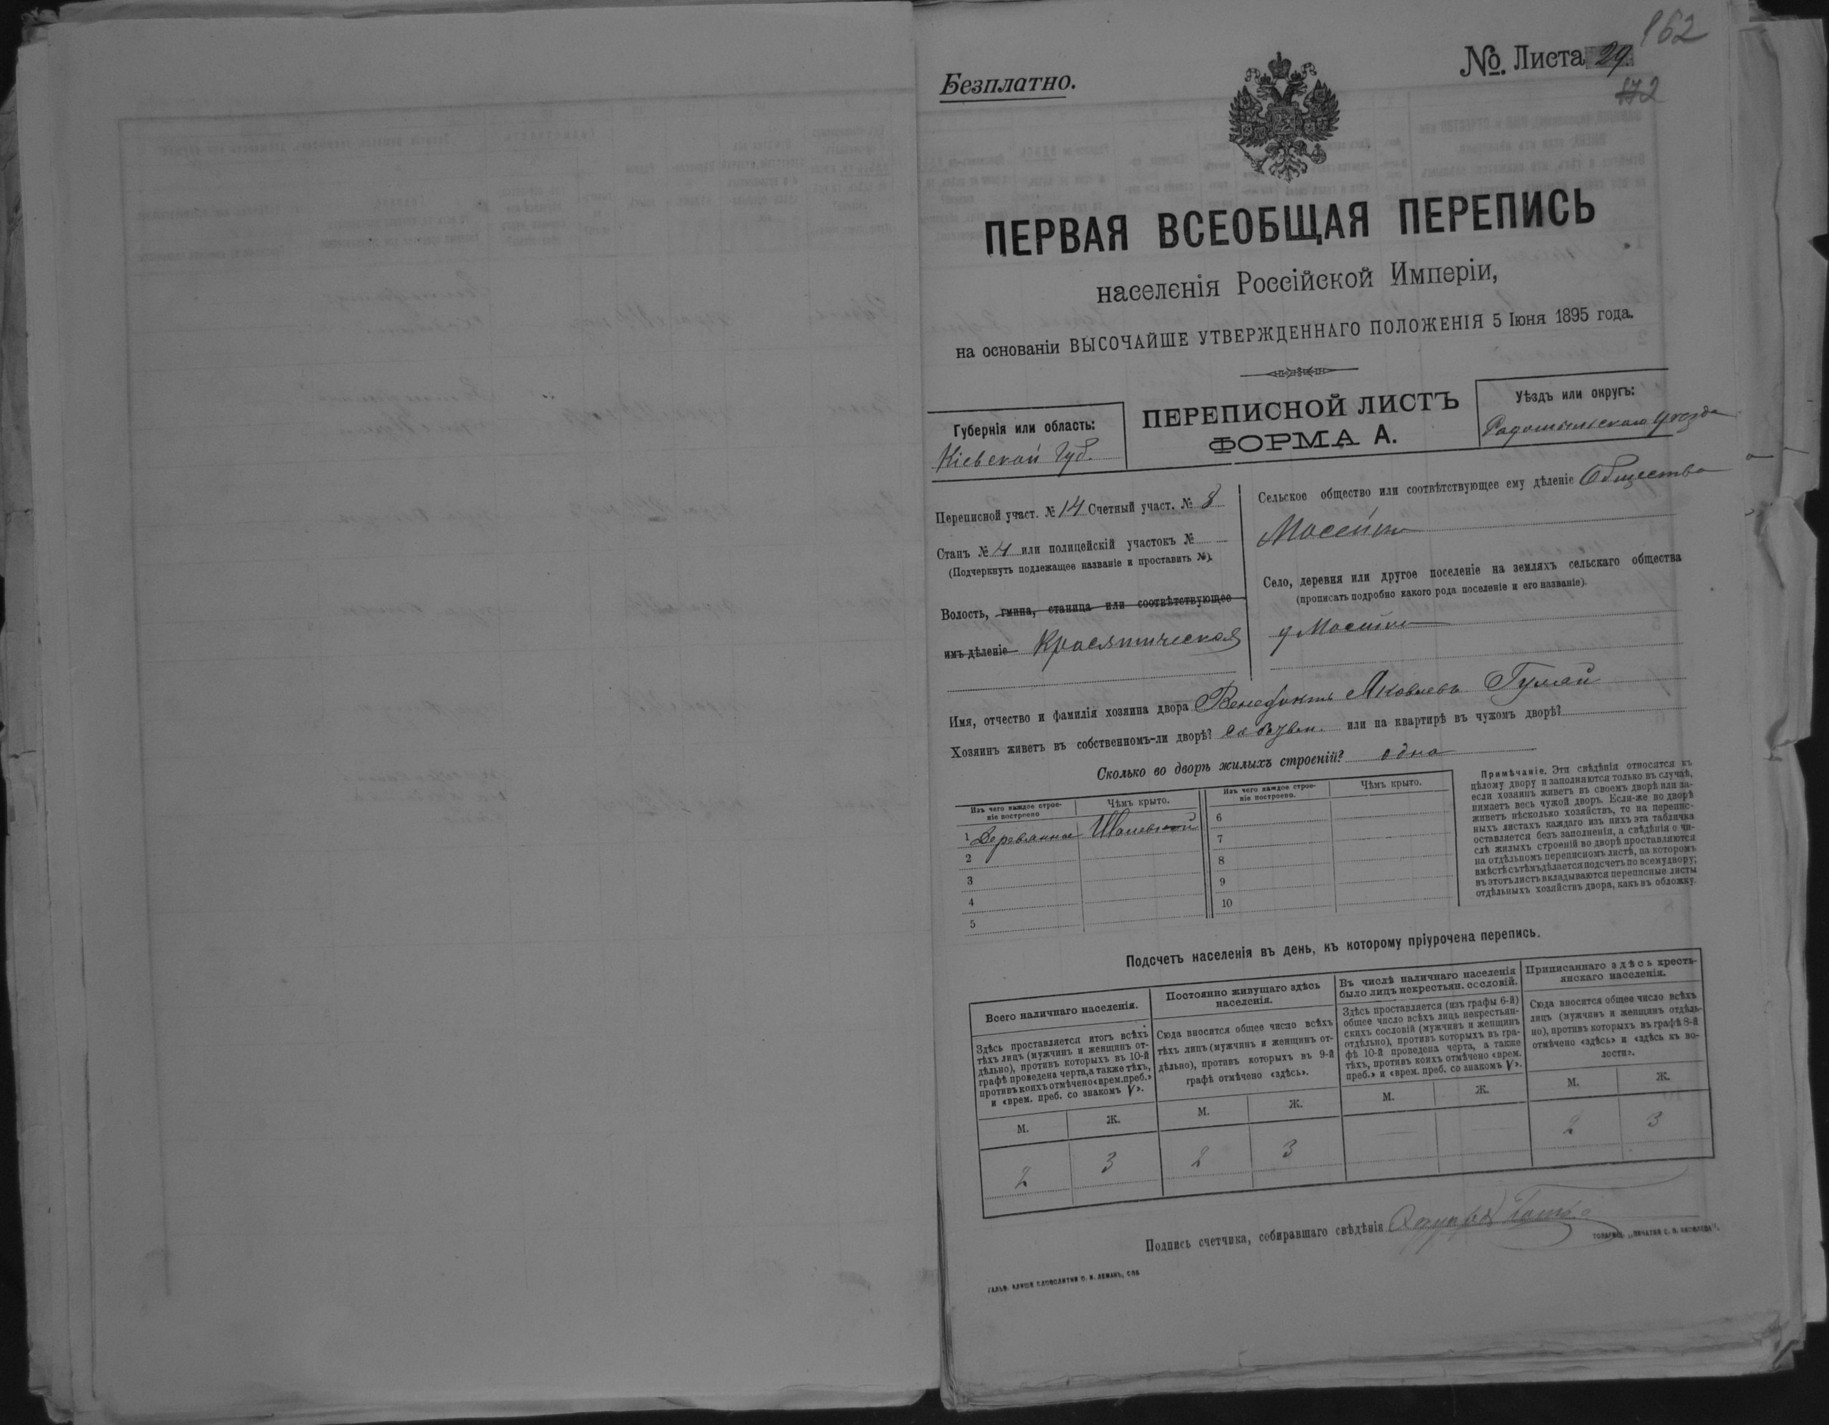 162
Безплатно.
№. Листа 29.
172
ПЕРВАЯ ВСЕОБЩАЯ ПЕРЕПИСЬ
населенія Россійской Имперіи,
на основаніи ВЫСОЧАЙШЕ УТВЕРЖДЕННАГО ПОЛОЖЕНІЯ 5 Іюня 1895 года.
Губернія или область:
Кіевской Губ.
ПЕРЕПИСНОЙ ЛИСТЪ
ФОРМА А.
Уѣздъ или округъ:
Радомысльскаго уѣзда
Переписной участ. № 14 Счетный участ. № 8
Станъ № 4 или полицейскій участокъ №
(Подчеркнуть подлежащее названіе и проставить №).
Волость, гмина, станица или соотвѣтствующее
имъ дѣленіе Красятическая
Сельское общество или соотвѣтствующее ему дѣленіе Общества
Село, деревня или другое поселеніе на земляхъ сельскаго общества
(прописать подробно какого рода поселеніе и его названіе)
Имя, отчество и фамилія хозяина двора Венедиктъ Яковлевъ Гулай
Хозяинъ живетъ въ собственномъ-ли дворѣ? или на квартирѣ въ чужомъ дворѣ?
Сколько во дворѣ жилыхъ строеній? одно
Изъ чего каждое строе-
ніе построено
Чѣмъ крыто.
Изъ чего каждое строе-
ніе построено.
Чѣмъ крыто.
1 Деревянное
2
3
4
5
6
7
8
9
10
Примѣчаніе. Эти свѣдѣнія относятся къ
цѣлому двору и заполняются только въ случаѣ,
если хозяинъ живетъ въ своемъ дворѣ или за-
нимаетъ весь чужой дворъ. Если-же во дворѣ
живетъ нѣсколько хозяйствъ, то на перепис-
ныхъ листахъ каждаго изъ нихъ эта табличка
оставляется безъ заполненія, а свѣдѣнія о чи-
слѣ жилыхъ строеній во дворѣ проставляются
на отдѣльномъ переписномъ листѣ, на которомъ
вмѣстѣ съ тѣмъ дѣлается подсчетъ по всему двору;
въ этотъ листъ вкладываются переписные листы
отдѣльныхъ хозяйствъ двора, какъ въ обложку.
Подсчетъ населенія въ день, къ которому пріурочена перепись.
Всего наличнаго населенія.
Здѣсь проставляется итогъ всѣхъ
тѣхъ лицъ (мужчинъ и женщинъ от-
дѣльно), противъ которыхъ въ 10-й
графѣ проведена черта, а также тѣхъ,
противъ коихъ отмѣчено «врем. преб.»
и «врем. преб. со знакомъ V».
Постоянно живущаго здѣсь
населенія.
Сюда вносится общее число всѣхъ
тѣхъ лицъ (мужчинъ и женщинъ от-
дѣльно), противъ которыхъ въ 9-й
графѣ отмѣчено «здѣсь».
Въ числѣ наличнаго населенія
было лицъ некрестьян. сословій.
Здѣсь проставляется (изъ графы 6-й)
общее число всѣхъ лицъ некрестьян-
скихъ сословій (мужчинъ и женщинъ
отдѣльно), противъ которыхъ въ гра-
фѣ 10-й проведена черта, а также
тѣхъ, противъ коихъ отмѣчено «врем.
преб.» и «врем. преб. со знакомъ V».
Приписаннаго здѣсь кресть-
янскаго населенія.
Сюда вносится общее число всѣхъ
лицъ (мужчинъ и женщинъ отдѣль-
но), противъ которыхъ въ графѣ 8-й
отмѣчено «здѣсь» и «здѣсь къ во-
лости».
М. Ж. М. Ж. М. Ж. М. Ж.
2 3 2 3 2 3
Подпись счетчика, собиравшаго свѣдѣнія